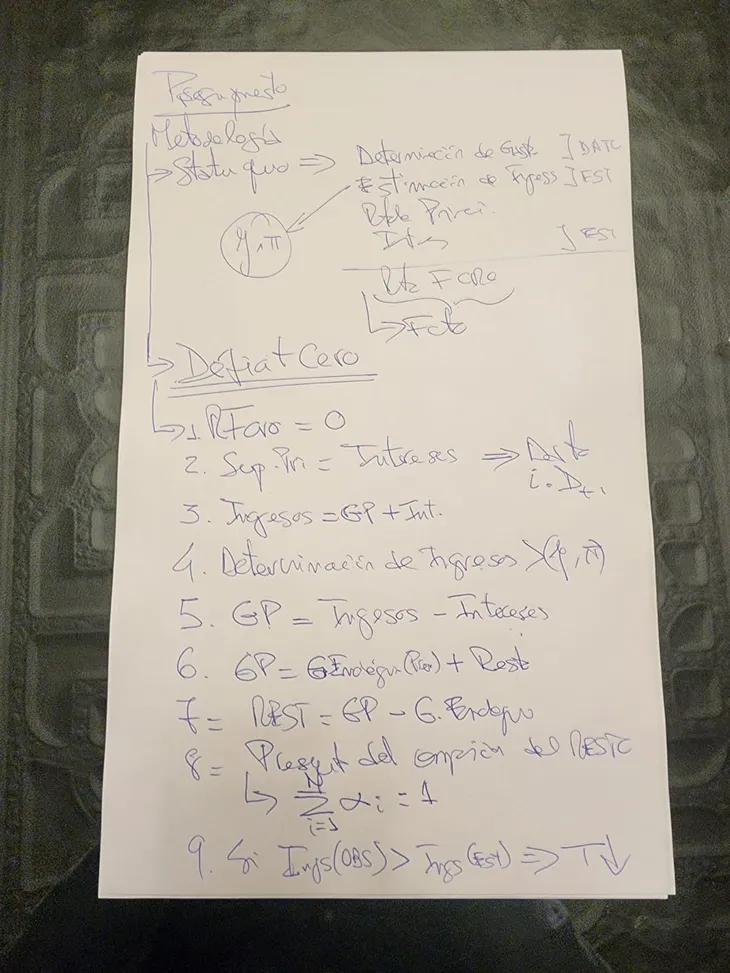 Presupuesto
Metodología
→ Statu quo ⇒ Determinación de Gasto ] DATO
Estimación de Ingresos ] EST
ŷ, π
Rtdo Primari.
Int ] EST
Rtdo F CRO
↳ Fcto
→ Déficit Cero
↳ 1. RFcro = 0
2. Sup. Pri = Intereses ⇒ Dato
i. D t-1
3. Ingresos = GP + Int.
4. Determinación de Ingresos (ŷ, π)
5. GP = Ingresos - Intereses
6. GP = G Endógeno (Prev) + Resto
7= REST = GP - G. Endogeno
8= Presupt del compción del RESTO
↳ N ∑ i=1 αi = 1
9. Si Ings(OBS) > Ings(Est) ⇒ T↓